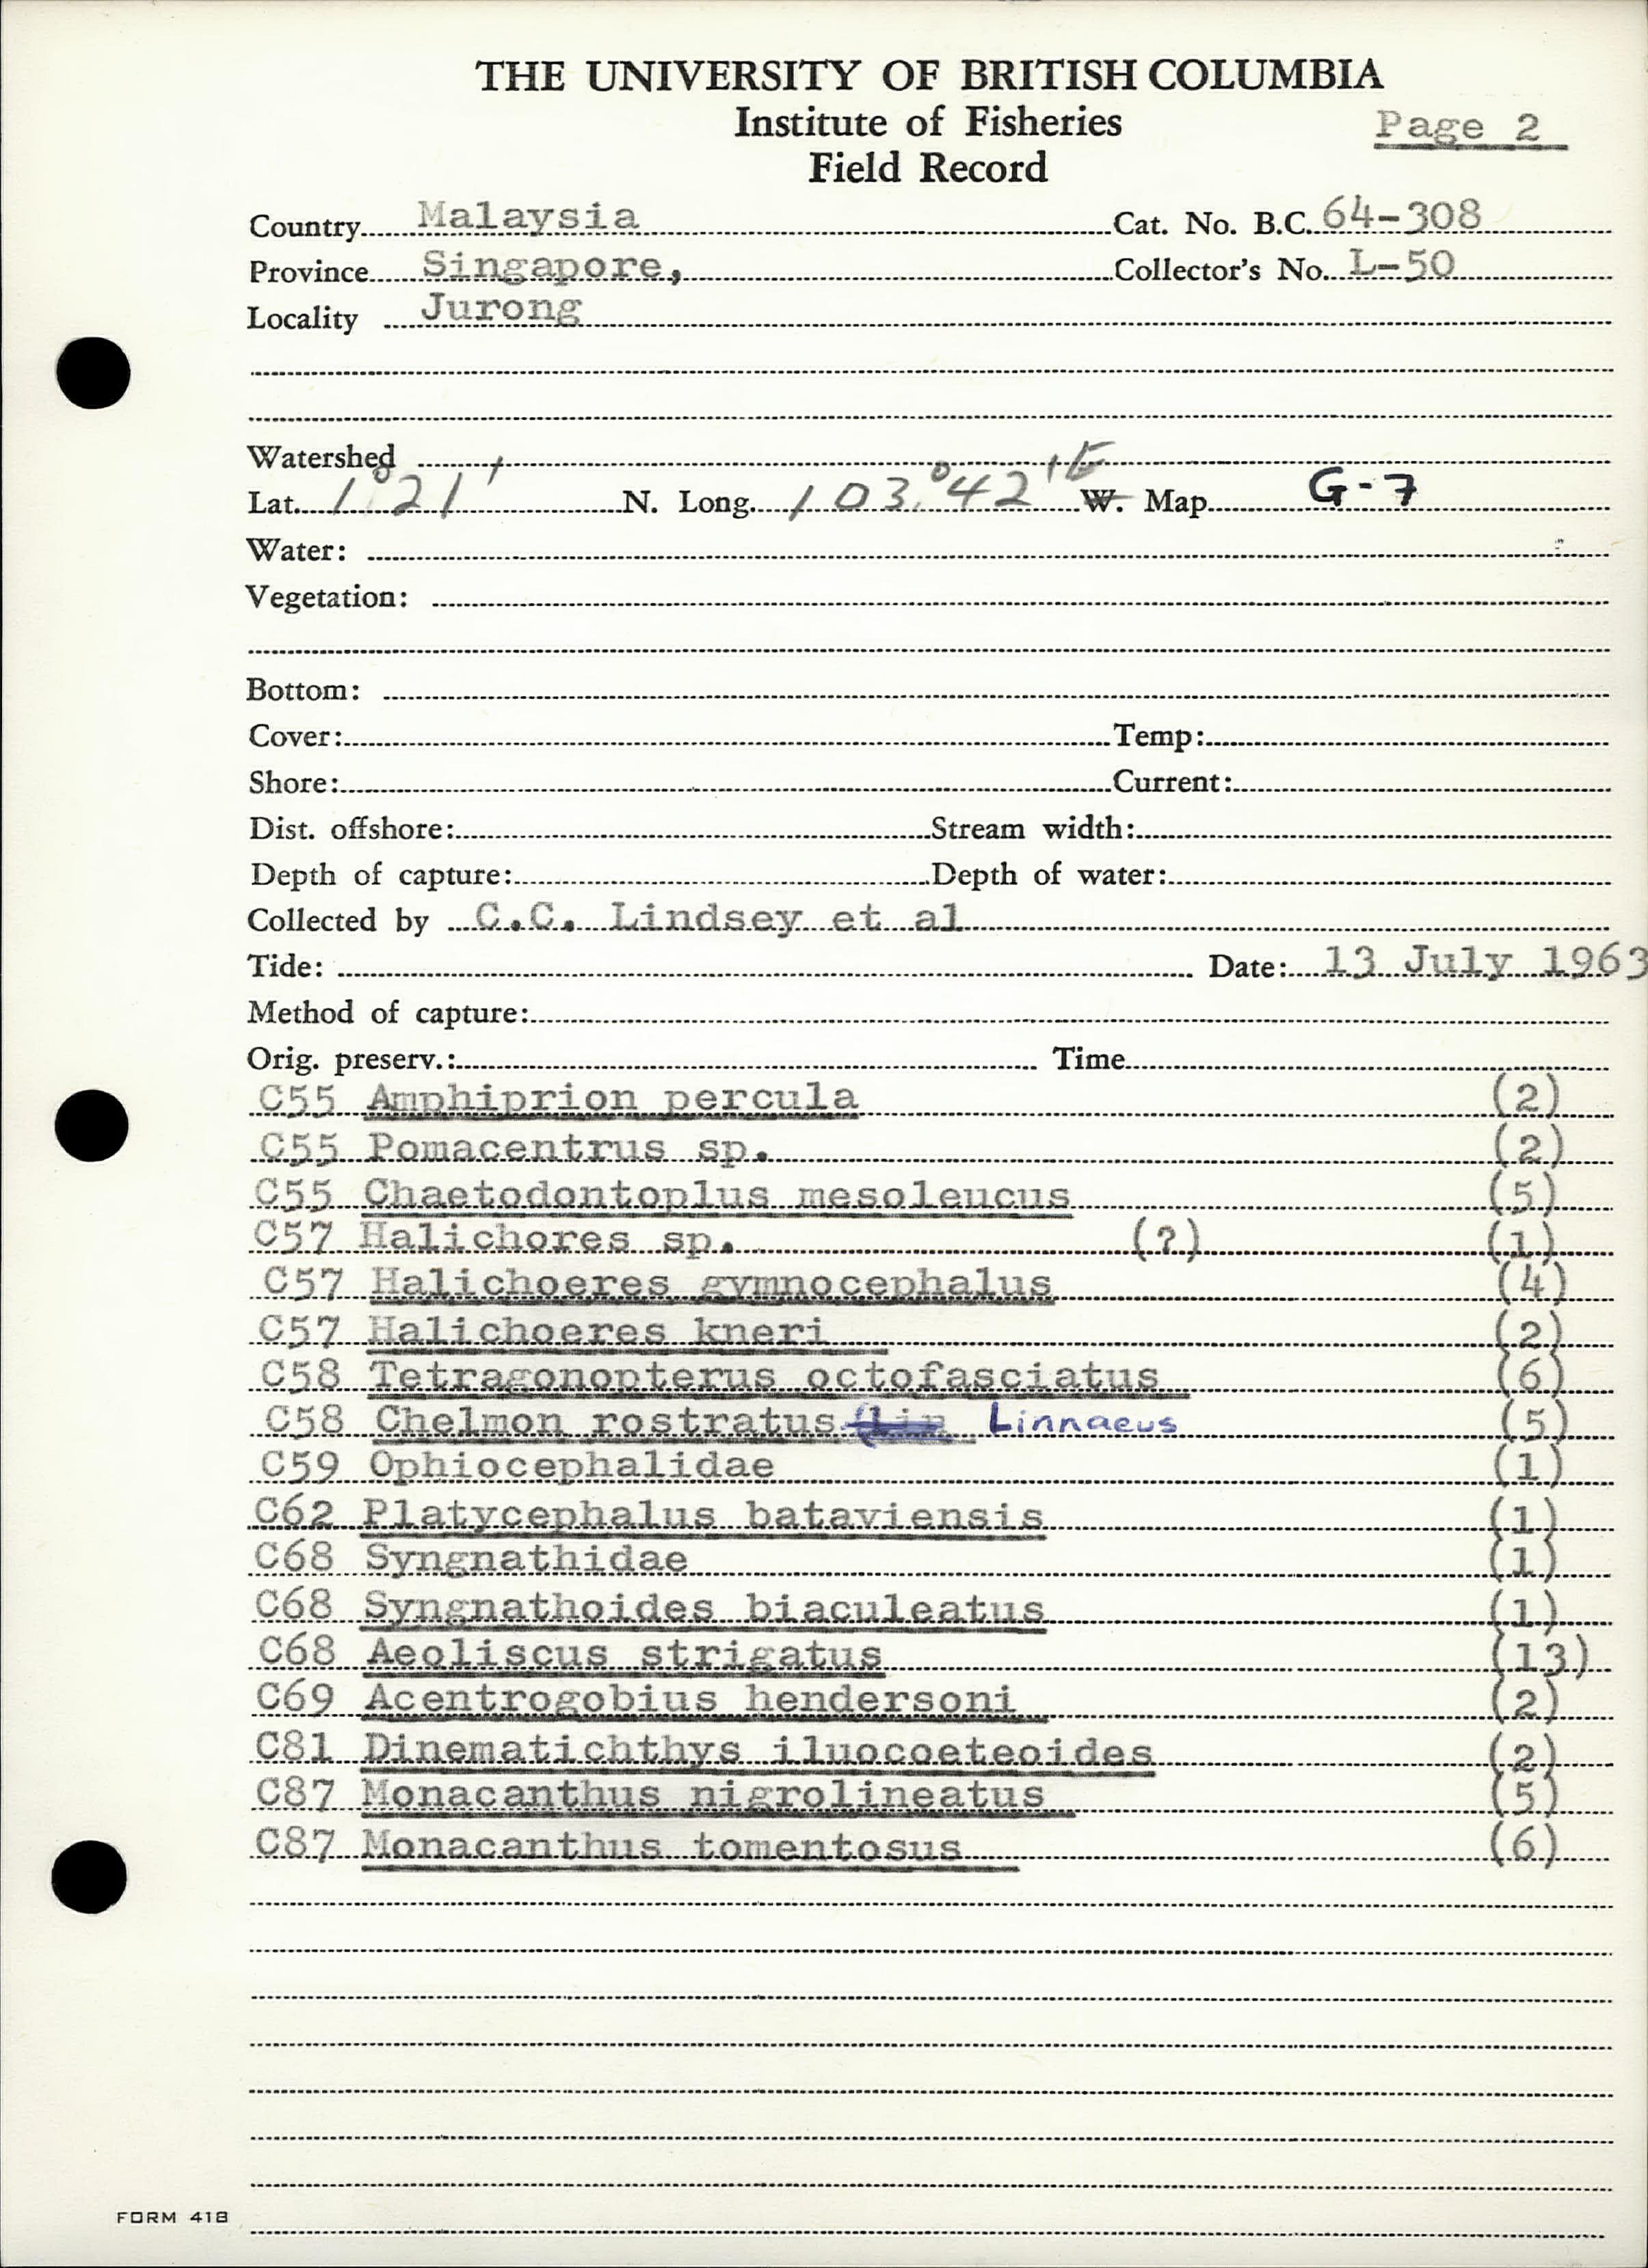 THE UNIVERSITY OF BRITISH COLUMBIA
Institute of Fisheries
Page 2
Field Record
Country Malaysia Cat. No. B.C. 64-308
Province Singapore, Collector's No. L-50
Locality Jurong
Watershed
Lat. 1°21' N. Long. 103°42'E W. Map G-7
Water:
Vegetation:
Bottom:
Cover: Temp:
Shore: Current:
Dist. offshore: Stream width:
Depth of capture: Depth of water:
Collected by C.C. Lindsey et al
Tide: Date: 13 July 1963
Method of capture:
Orig. preserv.: Time
C55 Amphiprion percula (2)
C55 Pomacentrus sp. (2)
C55 Chaetodontoplus mesoleucus (5)
C57 Halichores sp. (?) (1)
C57 Halichoeres gymnocephalus (4)
C57 Halichoeres kneri (2)
C58 Tetragonopterus octofasciatus (6)
C58 Chelmon rostratus (Lin Linnaeus (5)
C59 Ophiocephalidae (1)
C62 Platycephalus bataviensis (1)
C68 Syngnathidae (1)
C68 Syngnathoides biaculeatus (1)
C68 Aeoliscus strigatus (13)
C69 Acentrogobius hendersoni (2)
C81 Dinematichthys iluocoeteoides (2)
C87 Monacanthus nigrolineatus (5)
C87 Monacanthus tomentosus (6)
FORM 418